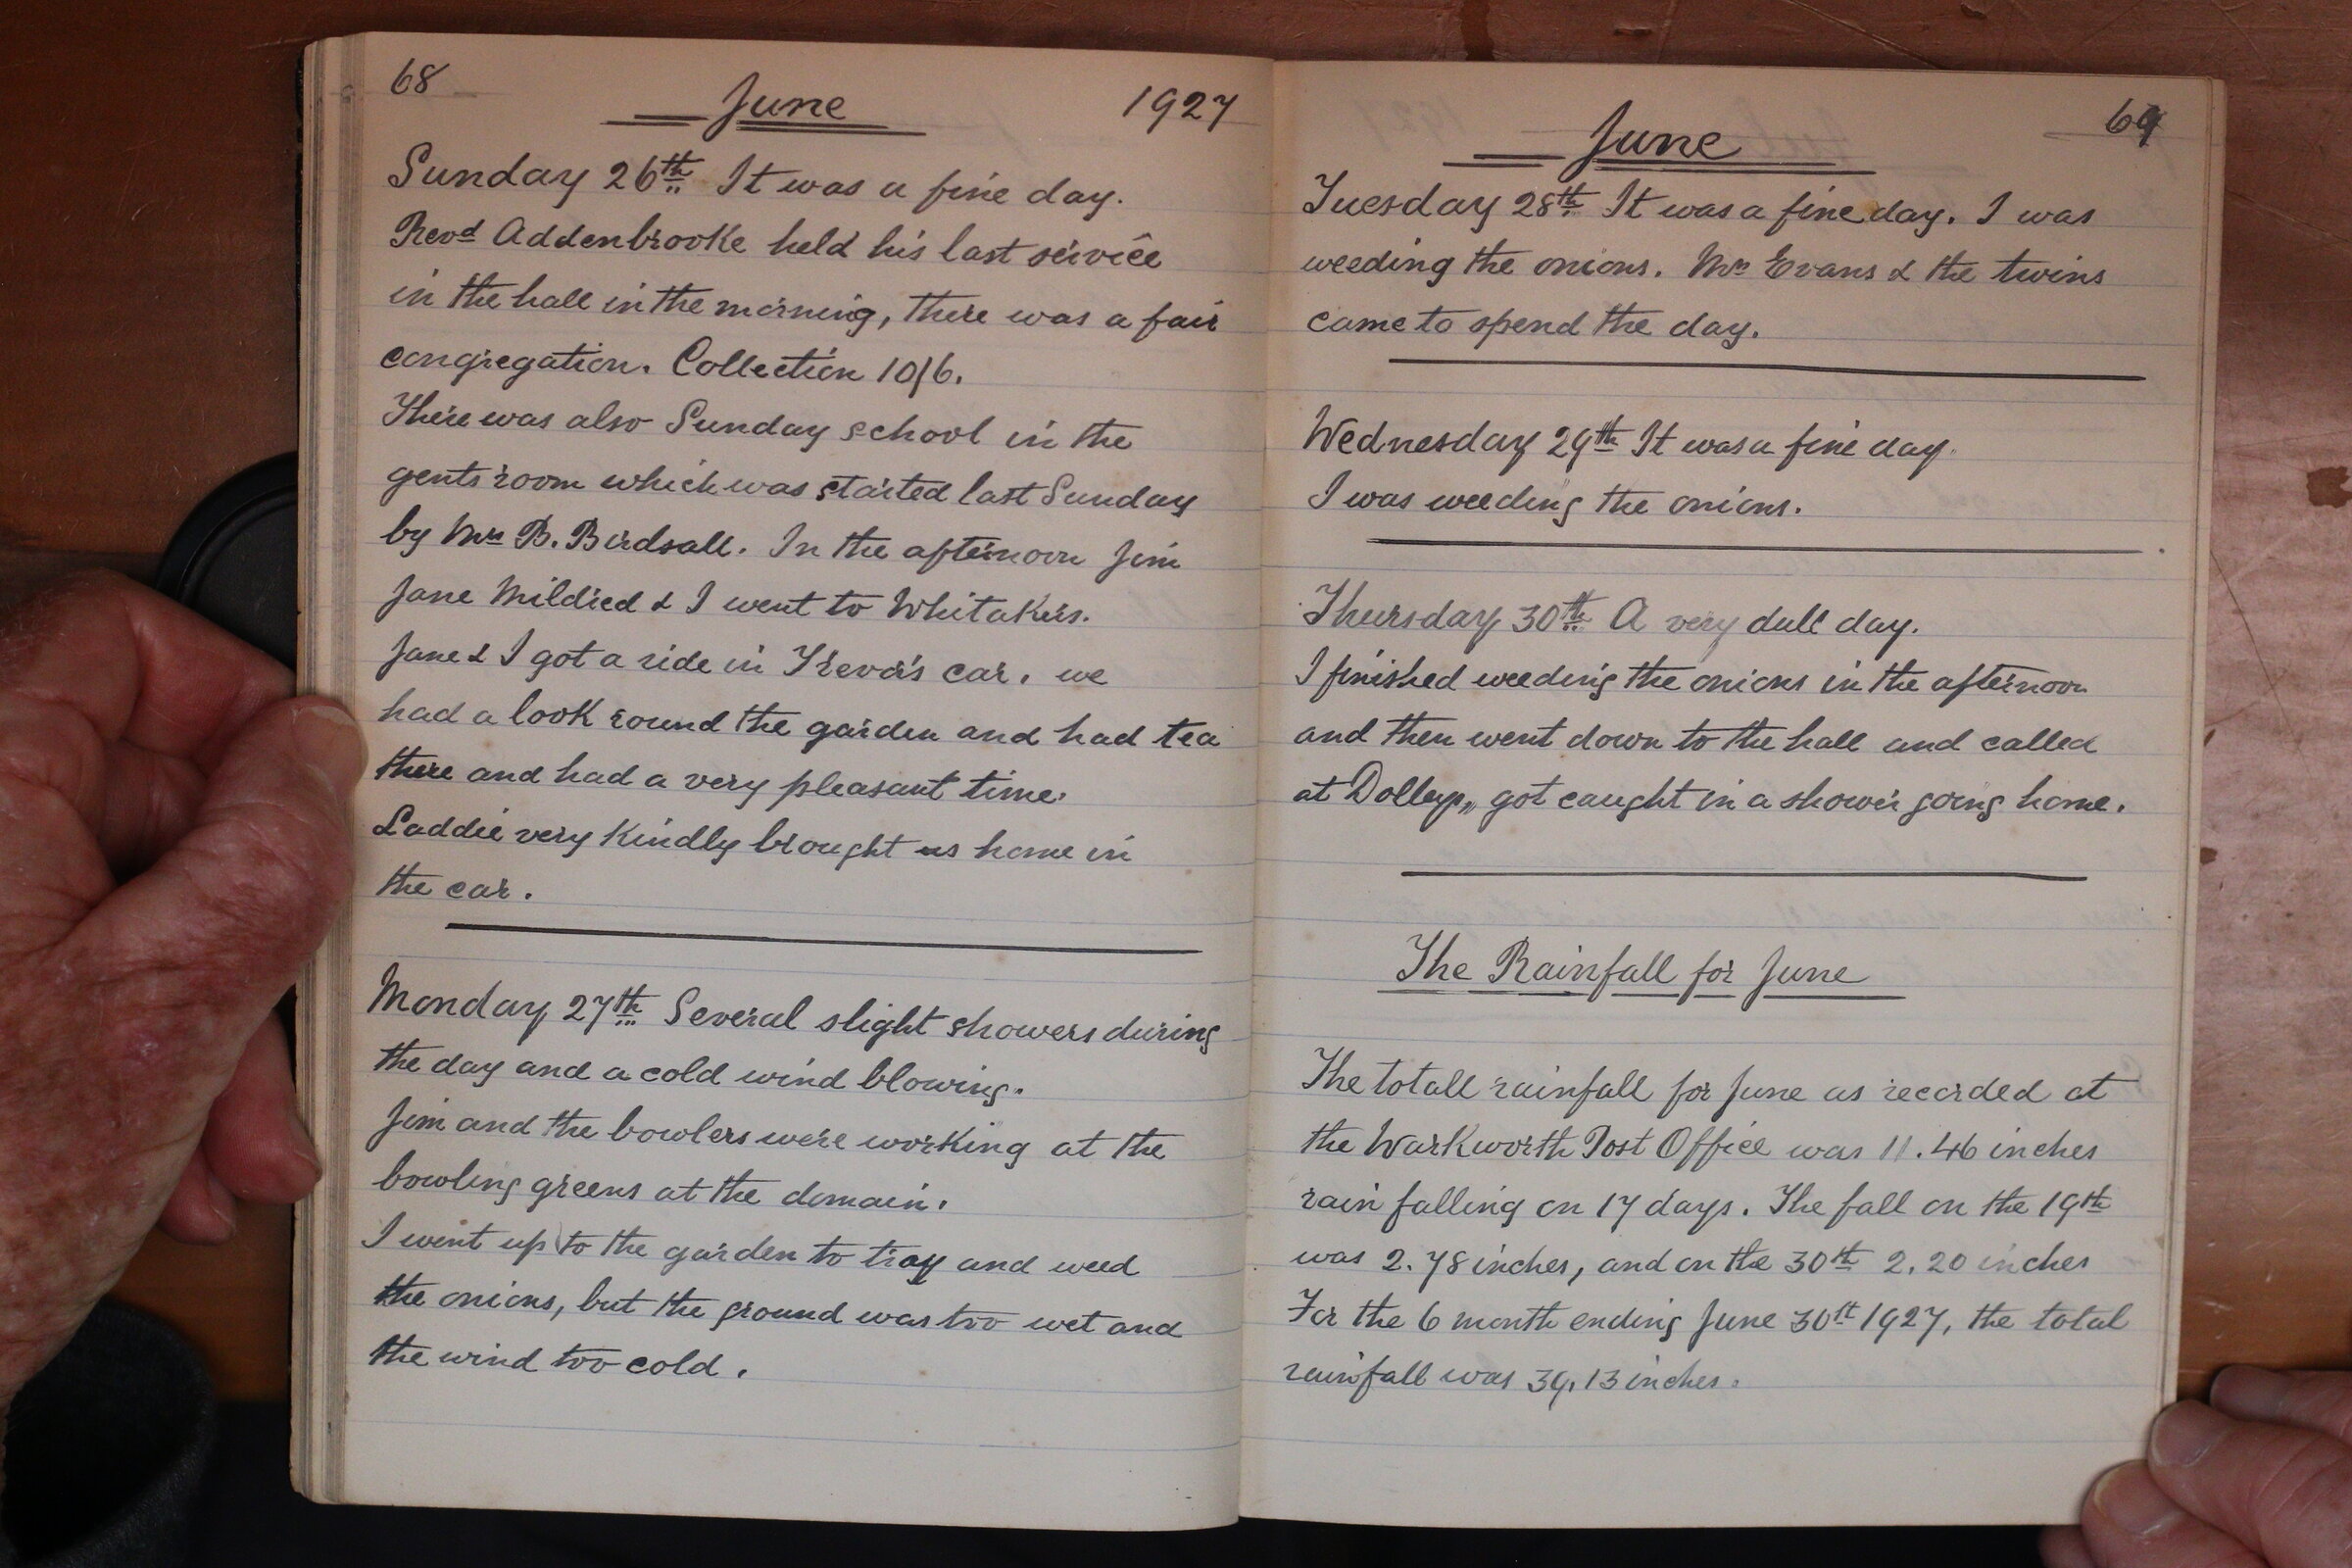 68
June 1927
Sunday 26th It was a fine day.
Revd Addenbrooke held his last service
in the hall in the morning, there was a fair
congregation. Collection 10/6.
There was also Sunday school in the
gents room which was started last Sunday
by Mrs B. Birdsall. In the afternoon Jim
Jane Mildred & I went to Whitakers.
Jane & I got a ride in Trevor's car. we
had a look round the garden and had tea
there and had a very pleasant time.
Laddie very kindly brought us home in
the car.
Monday 27th Several slight showers during
the day and a cold wind blowing.
Jim and the bowlers were working at the
bowling greens at the domain.
I went up to the garden to tray and weed
the onions, but the ground was too wet and
the wind too cold.
69
June
Tuesday 28th It was a fine day. I was
weeding the onions. Mrs Evans & the twins
came to spend the day.
Wednesday 29th It was a fine day.
I was weeding the onions.
Thursday 30th A very dull day.
I finished weeding the onions in the afternoon
and then went down to the hall and called
at Dollys,, got caught in a shower going home.
The Rainfall for June
The totall rainfall for June as recorded at
the Warkworth Post Office was 11.46 inches
rain falling on 17 days. The fall on the 19th
was 2.78 inches, and on the 30th 2.20 inches
For the 6 month ending June 30th 1927, the total
rainfall was 39.13 inches.